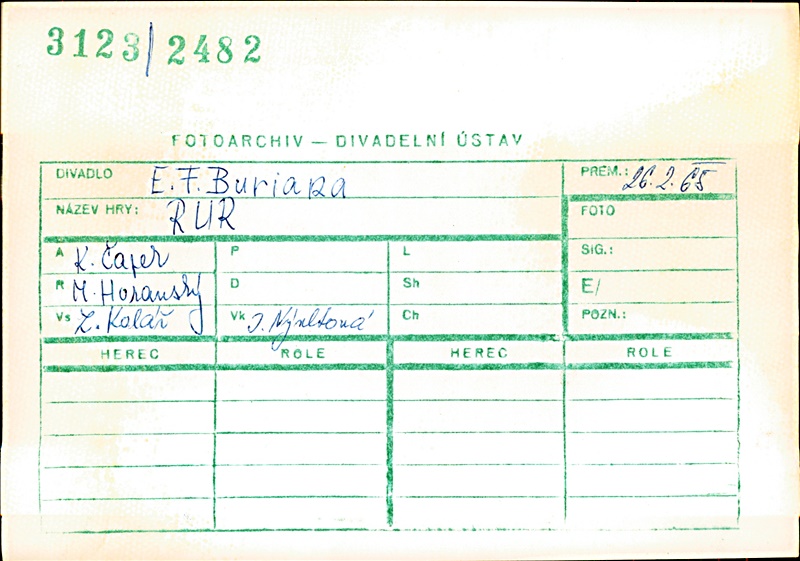 3123/2482
FOTOARCHIV — DIVADELNÍ ÚSTAV
DIVADLO E. F. Buriana PREM.: 26. 2. 65
NÁZEV HRY: RUR FOTO
A K. Čapek P L SIG.:
R M. Horanský D Sh E/
Vs Z. Kolář Vk J. Nývltová Ch POZN.:
HEREC ROLE HEREC ROLE